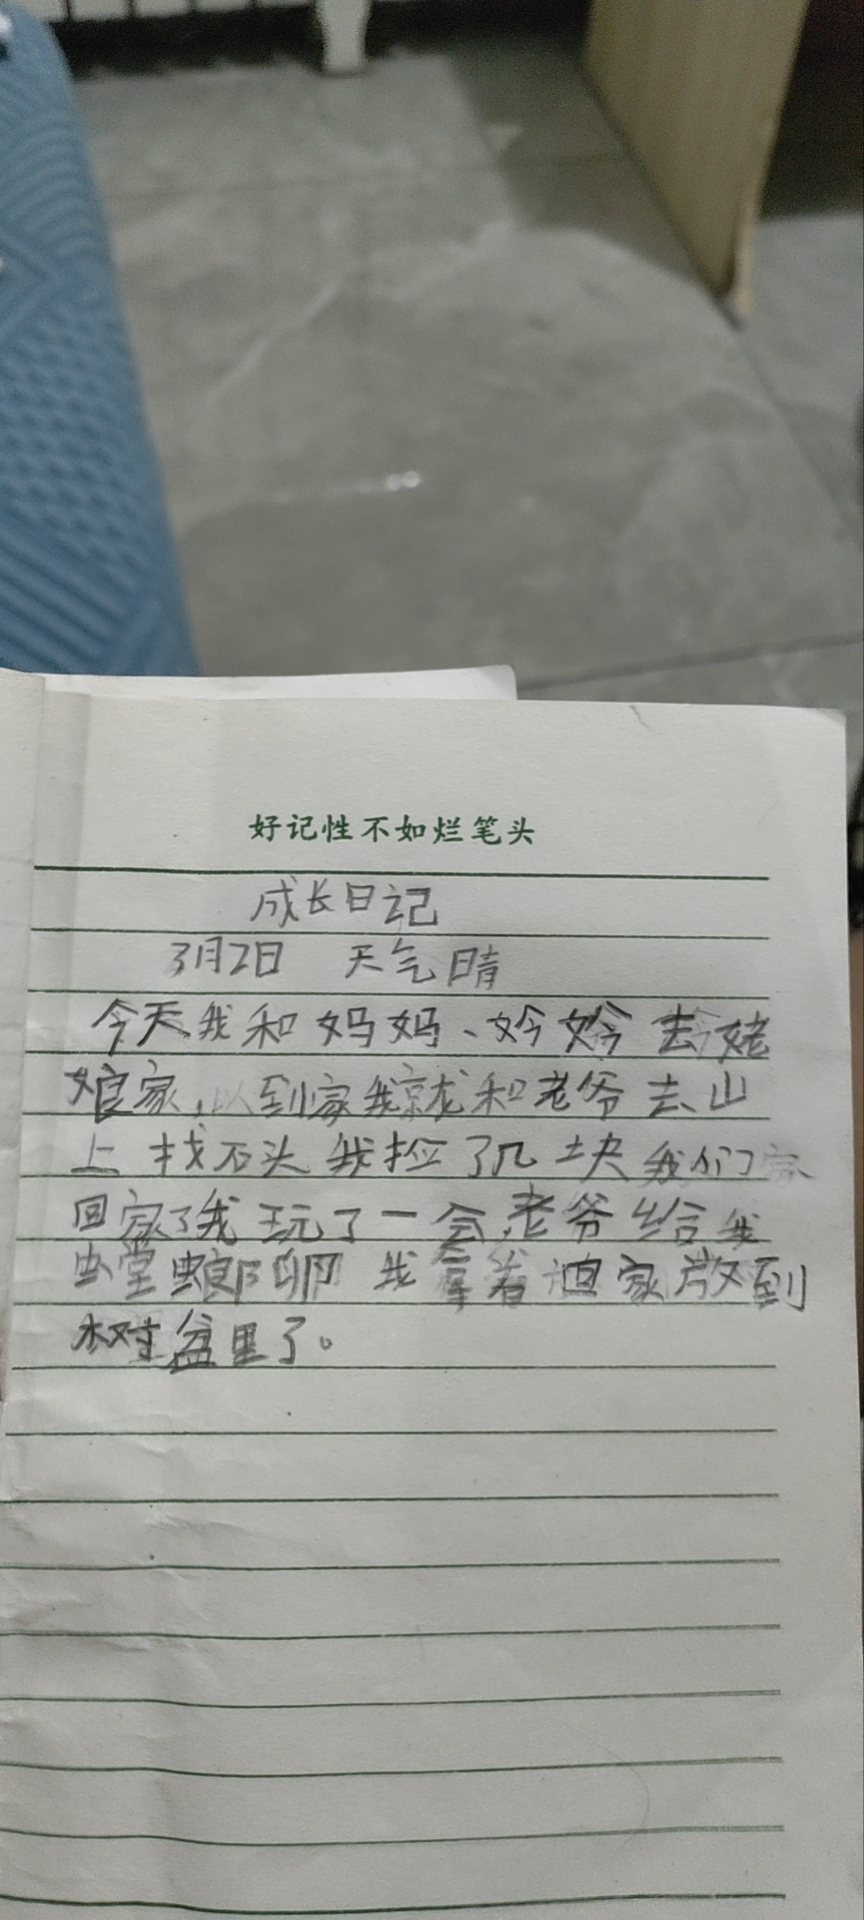 好记性不如烂笔头
成长日记
3月2日 天气晴
今天我和妈妈、妗妗去姥
娘家,以到家我就和老爷去山
上找石头我捡了几块我们家
回家了我玩了一会老爷给我
螳螂卵我拿着回家放到
树盆里了。